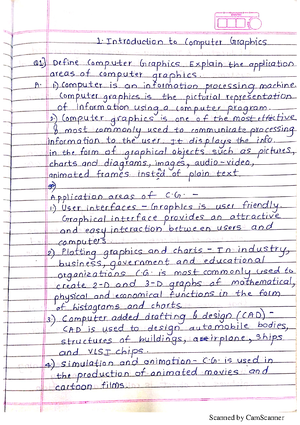 1. Introduction to Computer Graphics
Q1) Define Computer Graphics. Explain the application
areas of computer graphics.
A: 1) Computer is an information processing machine.
Computer graphics is the pictorial representation
of information using a computer program.
2) Computer graphics is one of the most effective
& most commonly used to communicate processing
information to the user. It displays the info
in the form of graphical objects such as pictures,
charts and diagrams, images, audio-video,
animated frames insted of plain text.
Application areas of C.G. -
1) User interfaces - Graphics is user friendly.
Graphical interface provides an attractive
and easy interaction between users and
computers.
2) Plotting graphics and charts - In industry,
business, government and educational
organizations C.G. is most commonly used to
create 2-D and 3-D graphs of mathematical,
physical and economical functions in the form
of histograms and charts.
3) Computer added drafting & design (CAD) -
CAD is used to design automobile bodies,
structures of buildings, airplane, ships
and VLSI chips.
4) Simulation and animation - C.G. is used in
the production of animated movies and
cartoon films.
Scanned by CamScanner